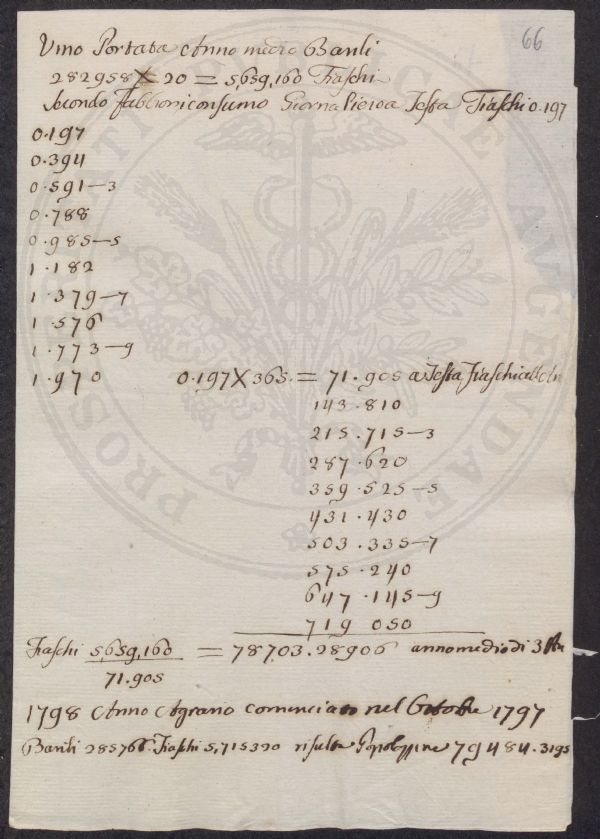 66
Vino Portata Anno medio Barili
282958 X 20 = 5,659,160 Fiaschi
Secondo Fabbroni consumo Giornaliero a Testa Fiaschi 0.197
0.197
0.394
0.591-3
0.788
0.985-5
1.182
1.379-7
1.576
1.773-9
1.970 0.197 X 365. = 71.905 a Testa Fiaschi all An
143.810
215.715-3
287.620
359.525-5
431.430
503.335-7
575.240
647.145-9
719 050
Fiaschi 5,659,160 = 78703.28906 anno medio di 3 An
71.905
1798 Anno Agrario cominciato nel Ottobre 1797
Barili 285766 Fiaschi 5,715320 risulta Popolazione 79484.3195
PROSPERITATI PUBLICAE AUGENDAE